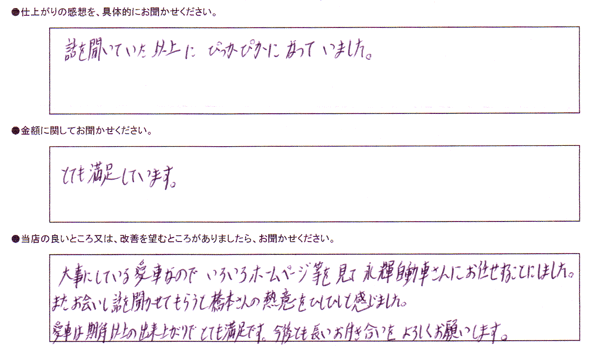 ●仕上がりの感想を、具体的にお聞かせください。
話を聞いていた以上に ぴっかぴかに なって いました。
●金額に関してお聞かせください。
とても満足しています。
●当店の良いところ又は、改善を望むところがありましたら、お聞かせください。
大事にしている愛車なので いろいろホームページ等を見て 永輝自動車さんにお任せすることにしました。
またお会いし話を聞かせてもらうて橋本さんの熱意をひしひしと感じました。
愛車は期待以上の出来上がりで とても満足です。今後とも長いお付き合いを よろしくお願いします。